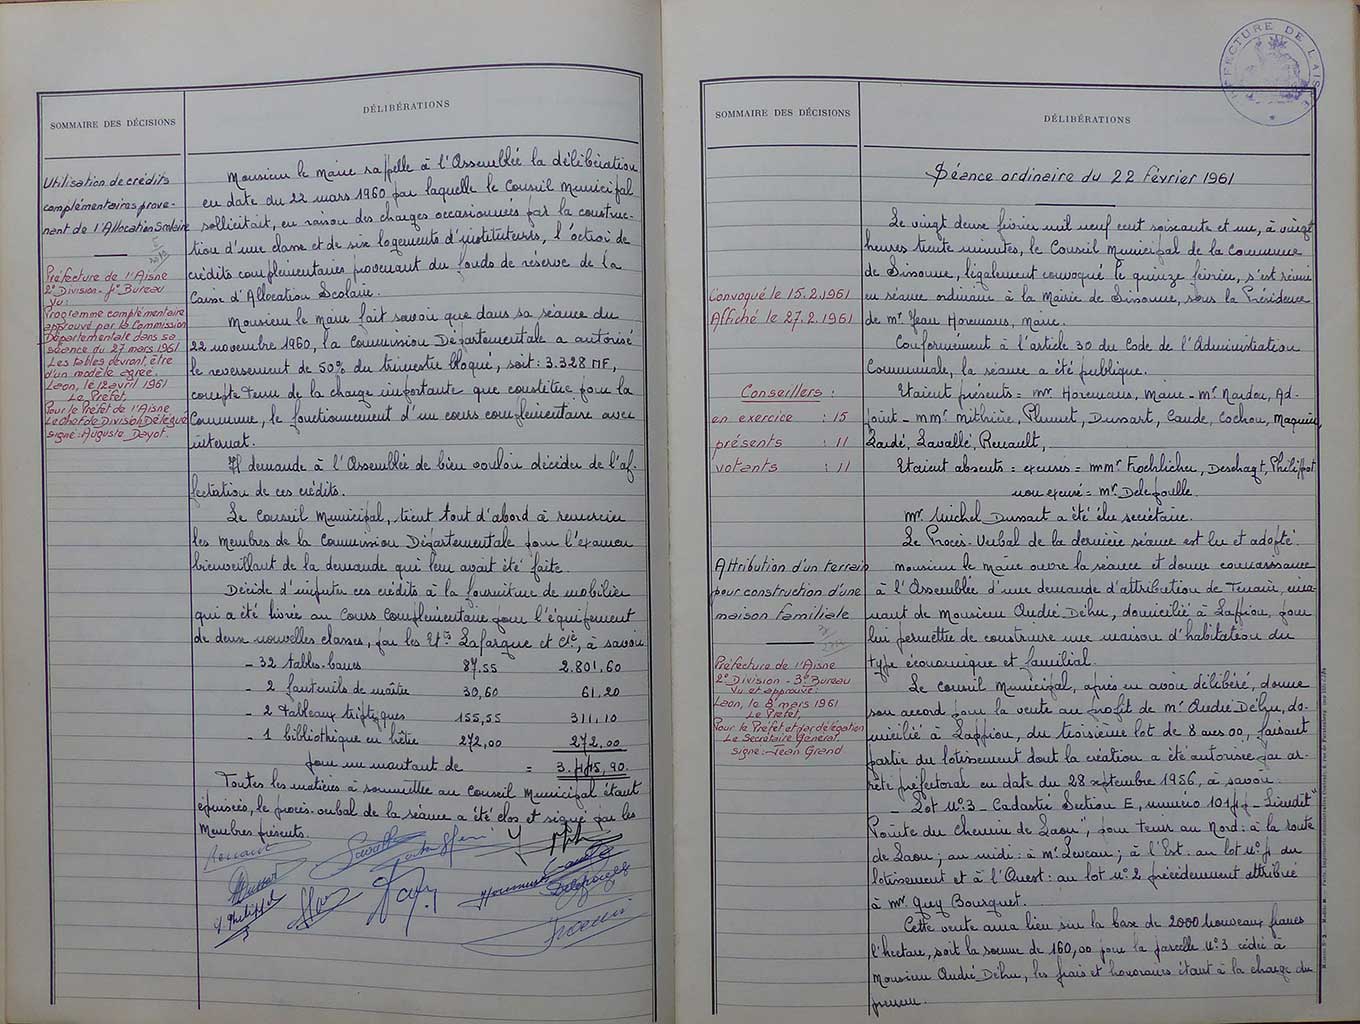 SOMMAIRE DES DÉCISIONS
DÉLIBÉRATIONS
Utilisation de crédits
complémentaires prove-
nant de l'Allocation Scolaire
Préfecture de l'Aisne
2e Division - 1er Bureau
Vu:
Programme complémentaire
approuvé par la Commission
Départementale dans sa
séance du 27 mars 1961
Les tables devront être
d'un modèle agréé.
Laon, le 12 avril 1961
Le Préfet,
Pour le Préfet de l'Aisne
Le Chef de Division Délégué
signé: Auguste Dayot.
Monsieur le Maire rappelle à l'Assemblée la délibération
en date du 22 mars 1960 par laquelle le Conseil Municipal
sollicitait, en raison des charges occasionnées par la construc-
tion d'une classe et de six logements d'instituteurs, l'octroi de
crédits complémentaires provenant du fonds de réserve de la
Caisse d'Allocation Scolaire.
Monsieur le Maire fait savoir que dans sa séance du
22 novembre 1960, la Commission Départementale a autorisé
le reversement de 50% du trimestre bloqué, soit: 3.328 NF,
compte tenu de la charge importante que constitue pour la
Commune, le fonctionnement d'un cours complémentaire avec
internat.
Il demande à l'Assemblée de bien vouloir décider de l'af-
fectation de ces crédits.
Le Conseil Municipal, tient tout d'abord à remercier
les Membres de la Commission Départementale pour l'examen
bienveillant de la demande qui leur avait été faite.
Décide d'imputer ces crédits à la fourniture de mobilier
qui a été livrée au Cours Complémentaire pour l'équipement
de deux nouvelles classes, par les Ets Lafarque et Cie, à savoir
- 32 tables-bancs 87.55 2.801.60
- 2 fauteuils de maître 30,60 61.20
- 2 Tableaux triptyques 155,55 311,10
- 1 bibliothèque en hêtre 272,00 272,00
pour un montant de = 3.445,90.
Toutes les matières à soumettre au Conseil Municipal étant
épuisées, le procès-verbal de la séance a été clos et signé par les
Membres présents.
SOMMAIRE DES DÉCISIONS
DÉLIBÉRATIONS
PRÉFECTURE DE L'AISNE
Séance ordinaire du 22 Février 1961
Le vingt deux février mil neuf cent soixante et un, à vingt
heures trente minutes, le Conseil Municipal de la Commune
de Sissonne, légalement convoqué le quinze février, s'est réuni
en séance ordinaire à la Mairie de Sissonne, sous la Présidence
de Mr Jean Horemans, Maire.
Conformément à l'article 30 du Code de l'Administration
Communale, la séance a été publique.
Convoqué le 15.2.1961
Affiché le 27.2.1961
Conseillers:
en exercice : 15
présents : 11
votants : 11
Etaient présents = MM Horemans, Maire - Mr Nardou, Ad-
joint - MMr Mithrière, Plumet, Dussart, Caude, Cochou,
Zardé, Lavallé, Renault,
Etaient absents = excusés = MMr Froehlicher, Deschagt, Philippot
non excusé = Mr Delefoulle.
Mr Michel Dussart a été élu secrétaire.
Le Procès-Verbal de la dernière séance est lu et adopté.
Attribution d'un terrain
pour construction d'une
maison familiale
Préfecture de l'Aisne
2e Division - 3e Bureau
Vu et approuvé:
Laon, le 8 mars 1961
Le Préfet,
Pour le Préfet et par délégation
Le Secrétaire Général
signé: Jean Grand
Monsieur le Maire ouvre la séance et donne connaissance
à l'Assemblée d'une demande d'attribution de Terrain, éma-
nant de Monsieur André Déhu, domicilié à Lappion, pour
lui permettre de construire une maison d'habitation du
type économique et familial.
Le Conseil Municipal, après en avoir délibéré, donne
son accord pour la vente au profit de Mr André Déhu, do-
micilié à Lappion, du troisième lot de 8 ares 00, faisant
partie du lotissement dont la création a été autorisée par ar-
rêté préfectoral en date du 28 septembre 1956, à savoir:
- Lot N°3 - Cadastré Section E, numéro 1014 - Lieudit "
Pointe du Chemin de Laon", pour tenir au Nord: à la route
de Laon; au midi: à Mr Leveau; à l'Est: au lot N°4 du
lotissement et à l'Ouest: au lot N°2 précédemment attribué
à Mr Guy Bousquet.
Cette vente aura lieu sur la base de 2000 Nouveaux francs
l'hectare, soit la somme de 160,00 pour la parcelle N°3 cédée à
Monsieur André Déhu, les frais et honoraires étant à la charge du
preneur.